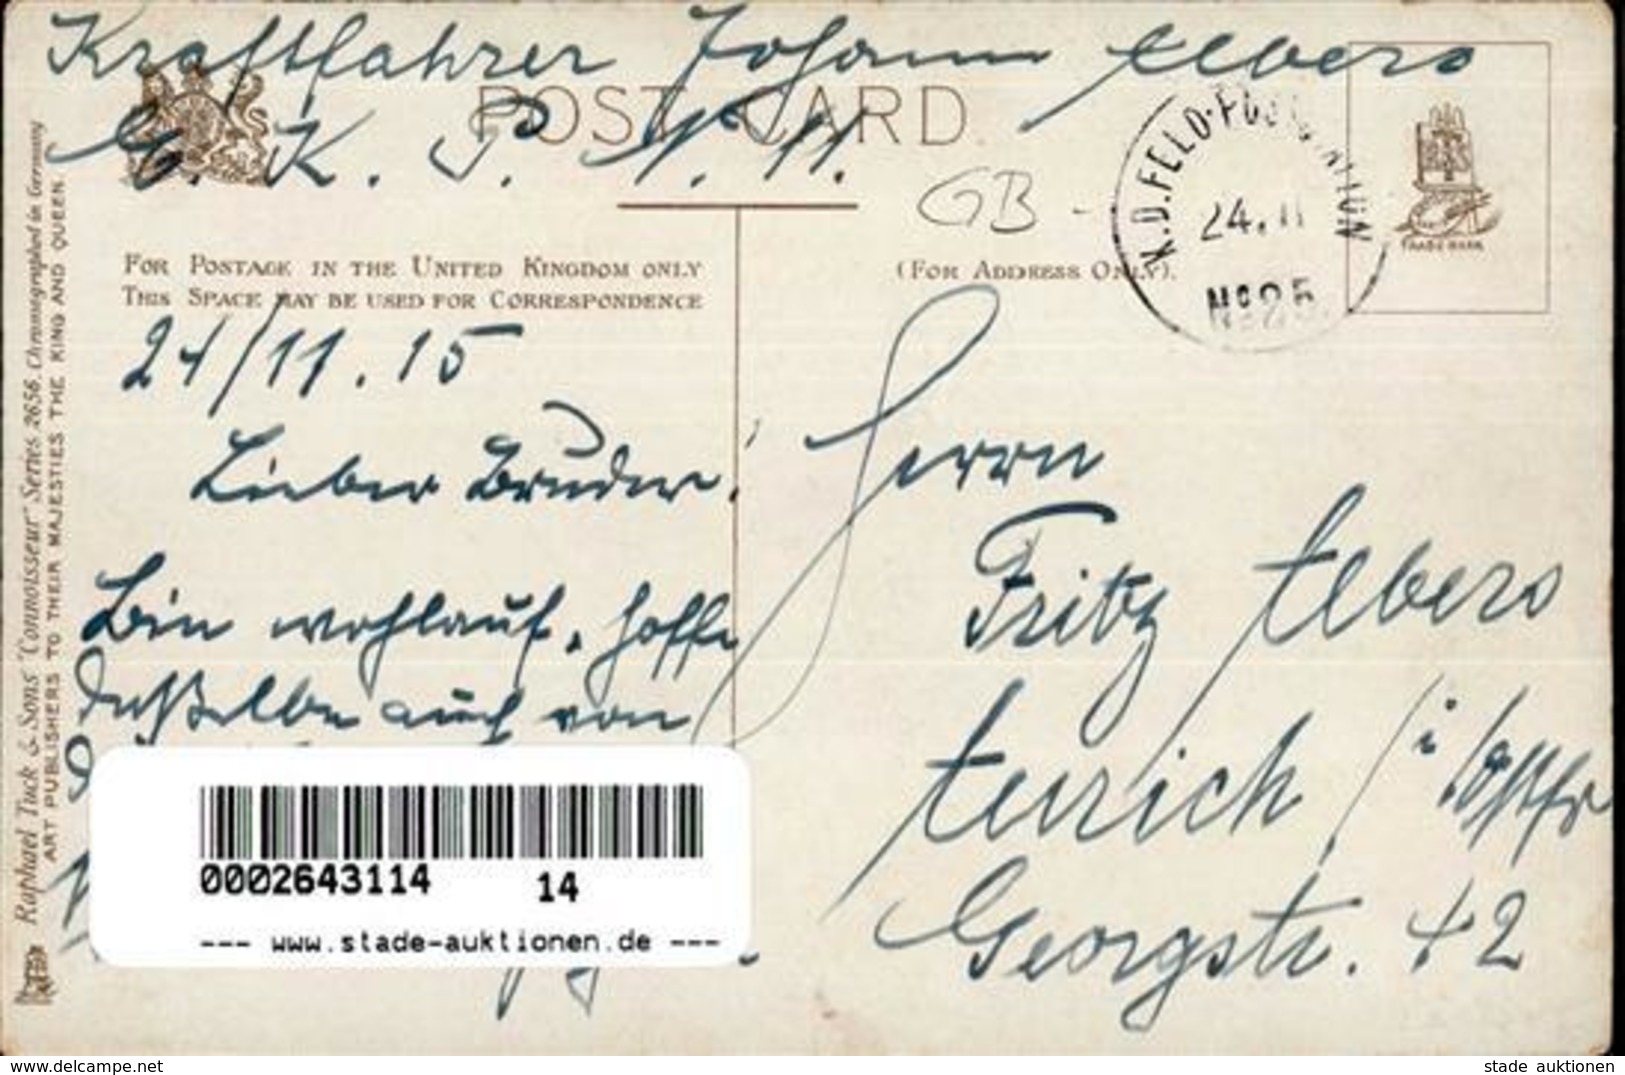 Kraftfahrer Johann Albers
E. K. P. N. 11.
POST CARD
GB -
K.D.FELD-POST
24.11
No 85
TRADE MARK
FOR POSTAGE IN THE UNITED KINGDOM ONLY
THIS SPACE MAY BE USED FOR CORRESPONDENCE
(FOR ADDRESS ONLY).
24/11. 15
Lieber Bruder!
Bin wohlauf, hoffe
dasselbe auch von
Herrn
Fritz Albers
Aurich / i. Ostfr
Georgstr. 42
Raphael Tuck & Sons' "Connoisseur" Series 2656. Chromographed in Germany
ART PUBLISHERS TO THEIR MAJESTIES THE KING AND QUEEN
0002643114 14
--- www.stade-auktionen.de ---
www.delcampe.net
stade auktionen